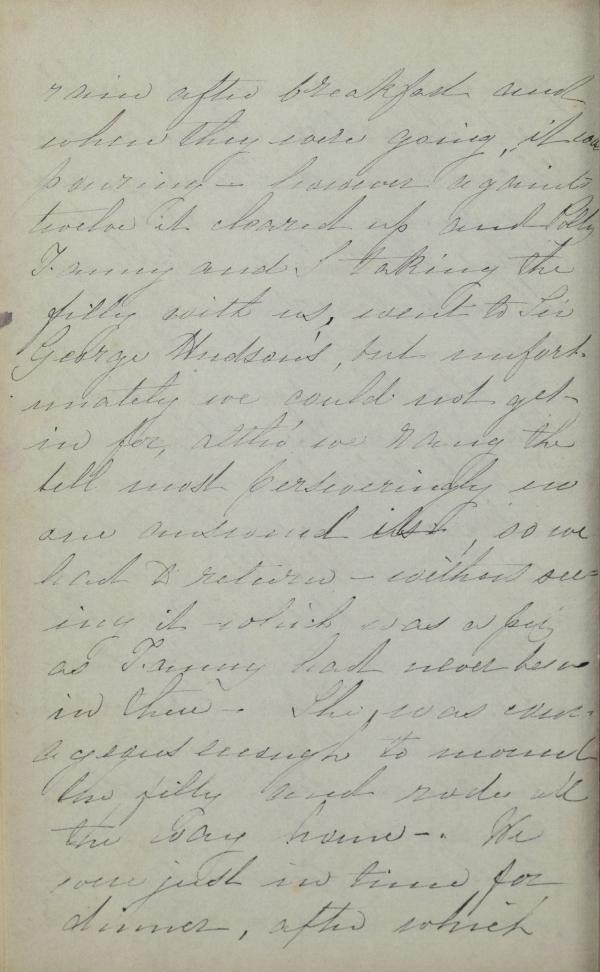 rain after breakfast and
when they were going, it was
pouring - however against
twelve it cleared up and Polly
Fanny and I taking the
filly with us, went to Sir
George Hudson's, but unfort-
unately we could not get
in for, altho' we rang the
bell most perseveringly no
one answered it, so we
had to return - without see-
ing it - which was a pity
as Fanny had never been
in there -. She, was cour-
ageous enough to mount
the filly and rode all
the way home -. We
were just in time for
dinner, after which